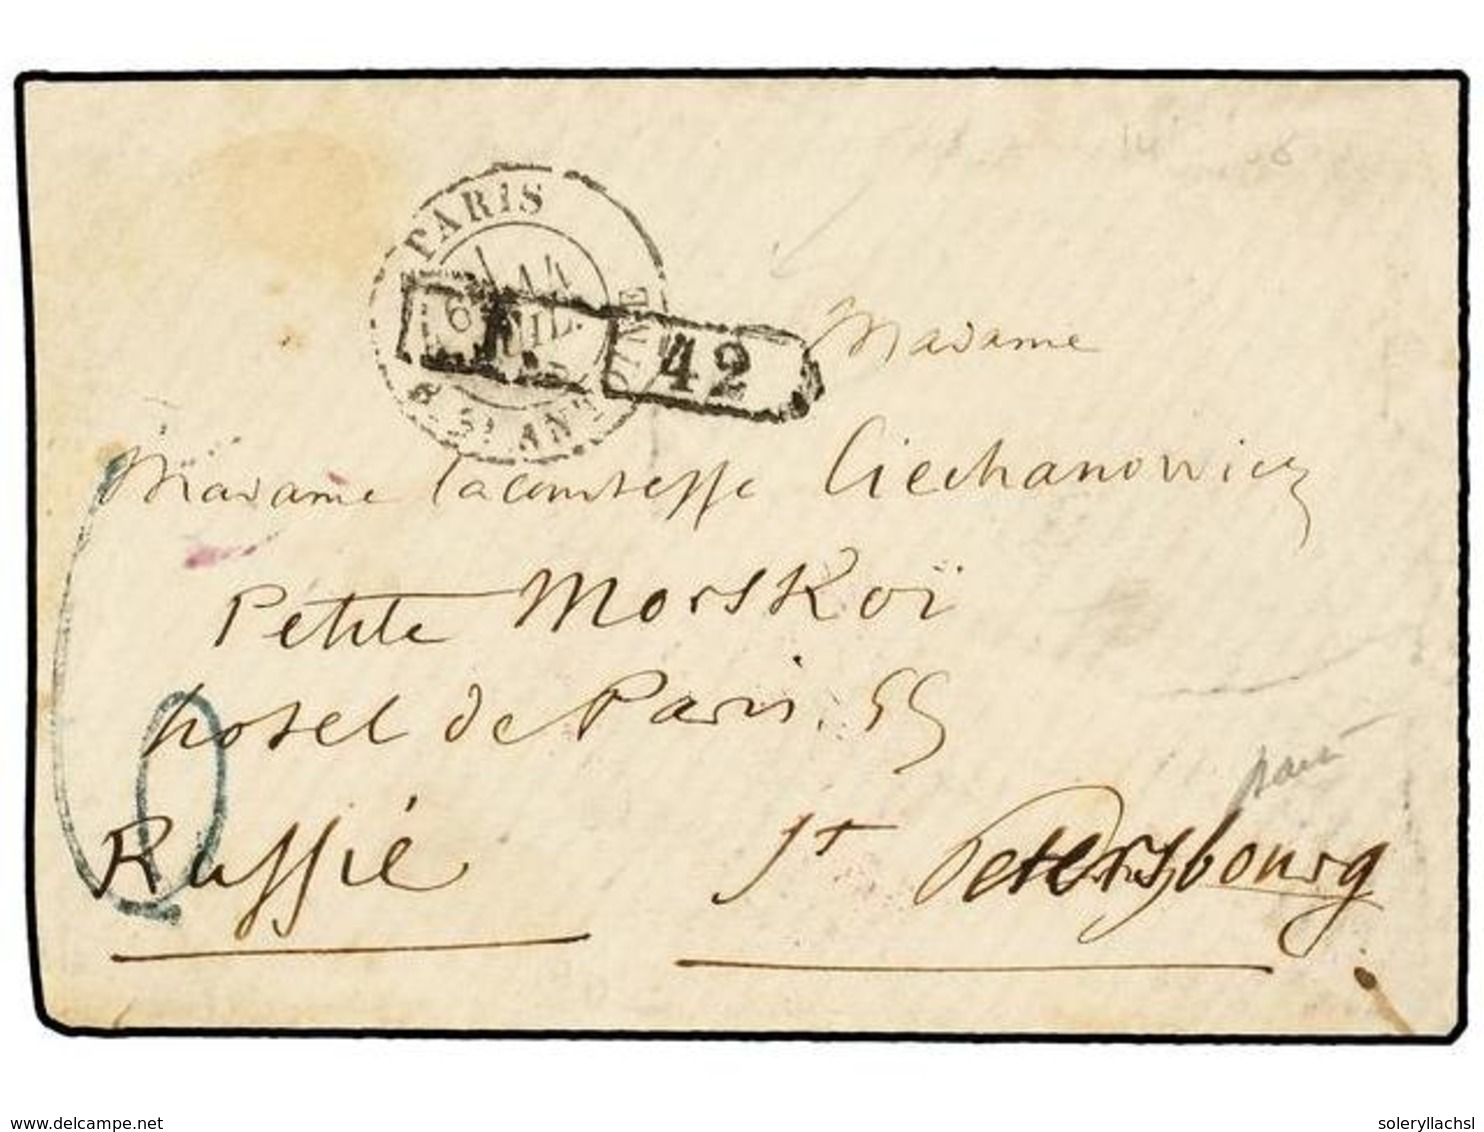 PARIS
14
6
JUIL.
R. St ANTOINE
F.
42
Madame
Madame la comtesse Ciechanowiez
Petite Morskoï
hotel de Paris. 55
Russie
St Petersbourg
delcampe.net
soleryllachsl